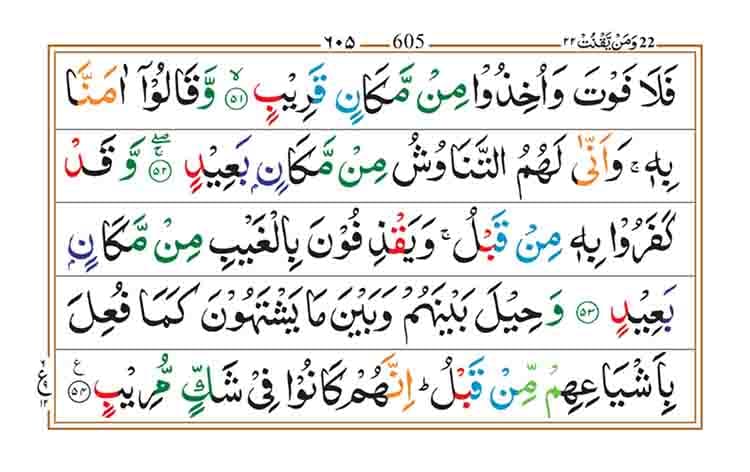 ٦٠٥ 605 ٢٢ وَمَنْ يَّقْنُتْ 22
فَلَا فَوْتَ وَاُخِذُوْا مِنْ مَّكَانٍ قَرِيْبٍ ۙ﴿٥١﴾ وَّقَالُوْٓا اٰمَنَّا
بِهٖ ۚ وَاَنّٰى لَهُمُ التَّنَاوُشُ مِنْ مَّكَانٍۭ بَعِيْدٍ ۚۖ﴿٥٢﴾ وَّقَدْ
كَفَرُوْا بِهٖ مِنْ قَبْلُ ۚ وَيَقْذِفُوْنَ بِالْغَيْبِ مِنْ مَّكَانٍۭ
بَعِيْدٍ ﴿٥٣﴾ وَحِيْلَ بَيْنَهُمْ وَبَيْنَ مَا يَشْتَهُوْنَ كَمَا فُعِلَ
بِاَشْيَاعِهِمْ مِّنْ قَبْلُ ؕ اِنَّهُمْ كَانُوْا فِيْ شَكٍّ مُّرِيْبٍ ﴿٥٤﴾ ع